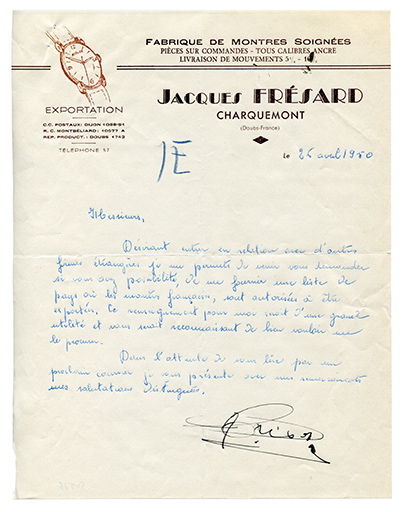 FABRIQUE DE MONTRES SOIGNÉES
PIÈCES SUR COMMANDES - TOUS CALIBRES ANCRE
LIVRAISON DE MOUVEMENTS
JACQUES FRÉSARD
CHARQUEMONT
(Doubs-France)
EXPORTATION
C.C. POSTAUX: DIJON
R. C. MONTBÉLIARD: 10077 A
REP. PRODUCT.: DOUBS 1742
TÉLÉPHONE 17
Le 25 avril 1950
Messieurs,
Désirant entrer en relation avec d'autres
pays étrangers je me permets de venir vous demander
si vous avez possibilité, de me fournir une liste de
pays où les montres françaises, sont autorisées à être
exportées. Ce renseignement pour moi serait d'une grande
utilité et vous serait reconnaissant de bien vouloir me
le procurer.
Dans l'attente de vous lire par un
prochain courrier je vous présente avec mes remerciements
mes salutations distinguées.